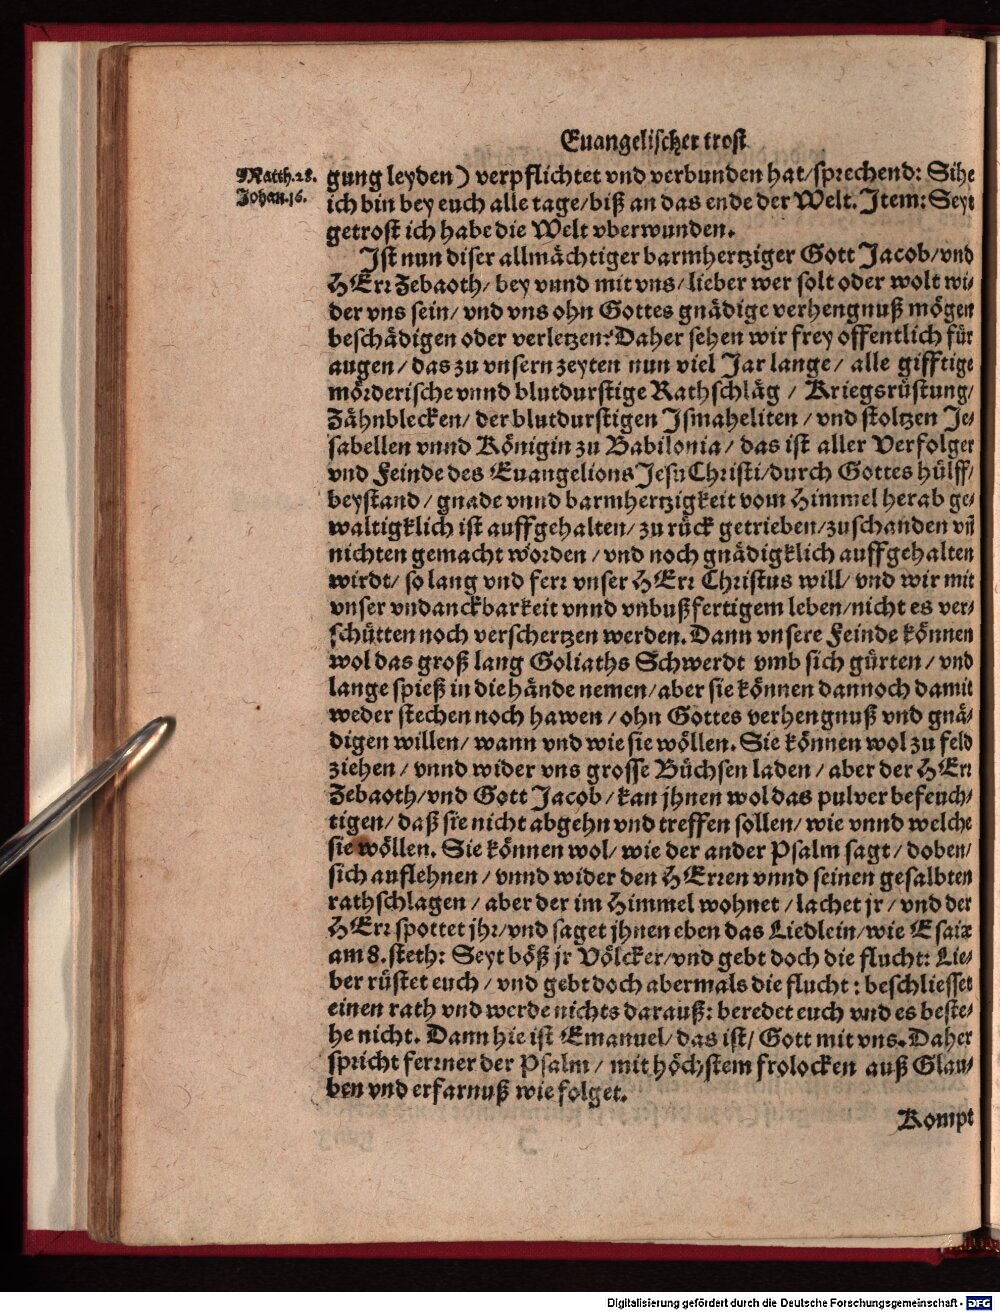 Euangelischer trost
Matth.28.
Johan.16.
gung leyden) verpflichtet vnd verbunden hat/sprechend: Sihe
ich bin bey euch alle tage/biß an das ende der Welt. Item: Seyt
getrost ich habe die Welt vberwunden.
Ist nun diser allmächtiger barmhertziger Gott Jacob/vnd
HErr Zebaoth/ bey vnnd mit vns/ lieber wer solt oder wolt wi/
der vns sein/ vnd vns ohn Gottes gnädige verhengnuß mögen
beschädigen oder verletzen? Daher sehen wir frey offentlich für
augen/ das zu vnsern zeyten nun viel Jar lange/ alle gifftige
mörderische vnnd blutdurstige Rathschläg / Kriegsrüstung/
Zähnblecken/ der blutdurstigen Ismaheliten / vnd stoltzen Je/
sabellen vnnd Königin zu Babilonia/ das ist aller Verfolger
vnd Feinde des Euangelions Jesu Christi/durch Gottes hülff/
beystand/ gnade vnnd barmhertzigkeit vom Himmel herab ge/
waltigklich ist auffgehalten/ zu rück getrieben/zuschanden vñ
nichten gemacht worden / vnd noch gnädigklich auffgehalten
wirdt/ so lang vnd ferr vnser HErr Christus will/ vnd wir mit
vnser vndanckbarkeit vnnd vnbußfertigem leben/nicht es ver/
schütten noch verschertzen werden. Dann vnsere Feinde können
wol das groß lang Goliaths Schwerdt vmb sich gürten/ vnd
lange spieß in die hände nemen/aber sie können dannoch damit
weder stechen noch hawen/ ohn Gottes verhengnuß vnd gnä/
digen willen/ wann vnd wie sie wöllen. Sie können wol zu feld
ziehen/ vnnd wider vns grosse Büchsen laden/ aber der HErr
Zebaoth/vnd Gott Jacob/ kan jhnen wol das pulver befeuch/
tigen/ daß sie nicht abgehn vnd treffen sollen/ wie vnnd welche
sie wöllen. Sie können wol/ wie der ander Psalm sagt/ doben/
sich auflehnen/ vnnd wider den HErren vnnd seinen gesalbten
rathschlagen/ aber der im Himmel wohnet/ lachet jr/ vnd der
HErr spottet jhr/vnd saget jhnen eben das Liedlein/wie Esaiæ
am 8. steth: Seyt böß jr Völcker/vnd gebt doch die flucht: Lie/
ber rüstet euch/ vnd gebt doch abermals die flucht: beschliesset
einen rath vnd werde nichts darauß: beredet euch vnd es beste/
he nicht. Dann hie ist Emanuel/ das ist/ Gott mit vns. Daher
spricht ferrner der Psalm/ mit höchstem frolocken auß Glau/
ben vnd erfarnuß wie folget.
Kompt
Digitalisierung gefördert durch die Deutsche Forschungsgemeinschaft - DFG